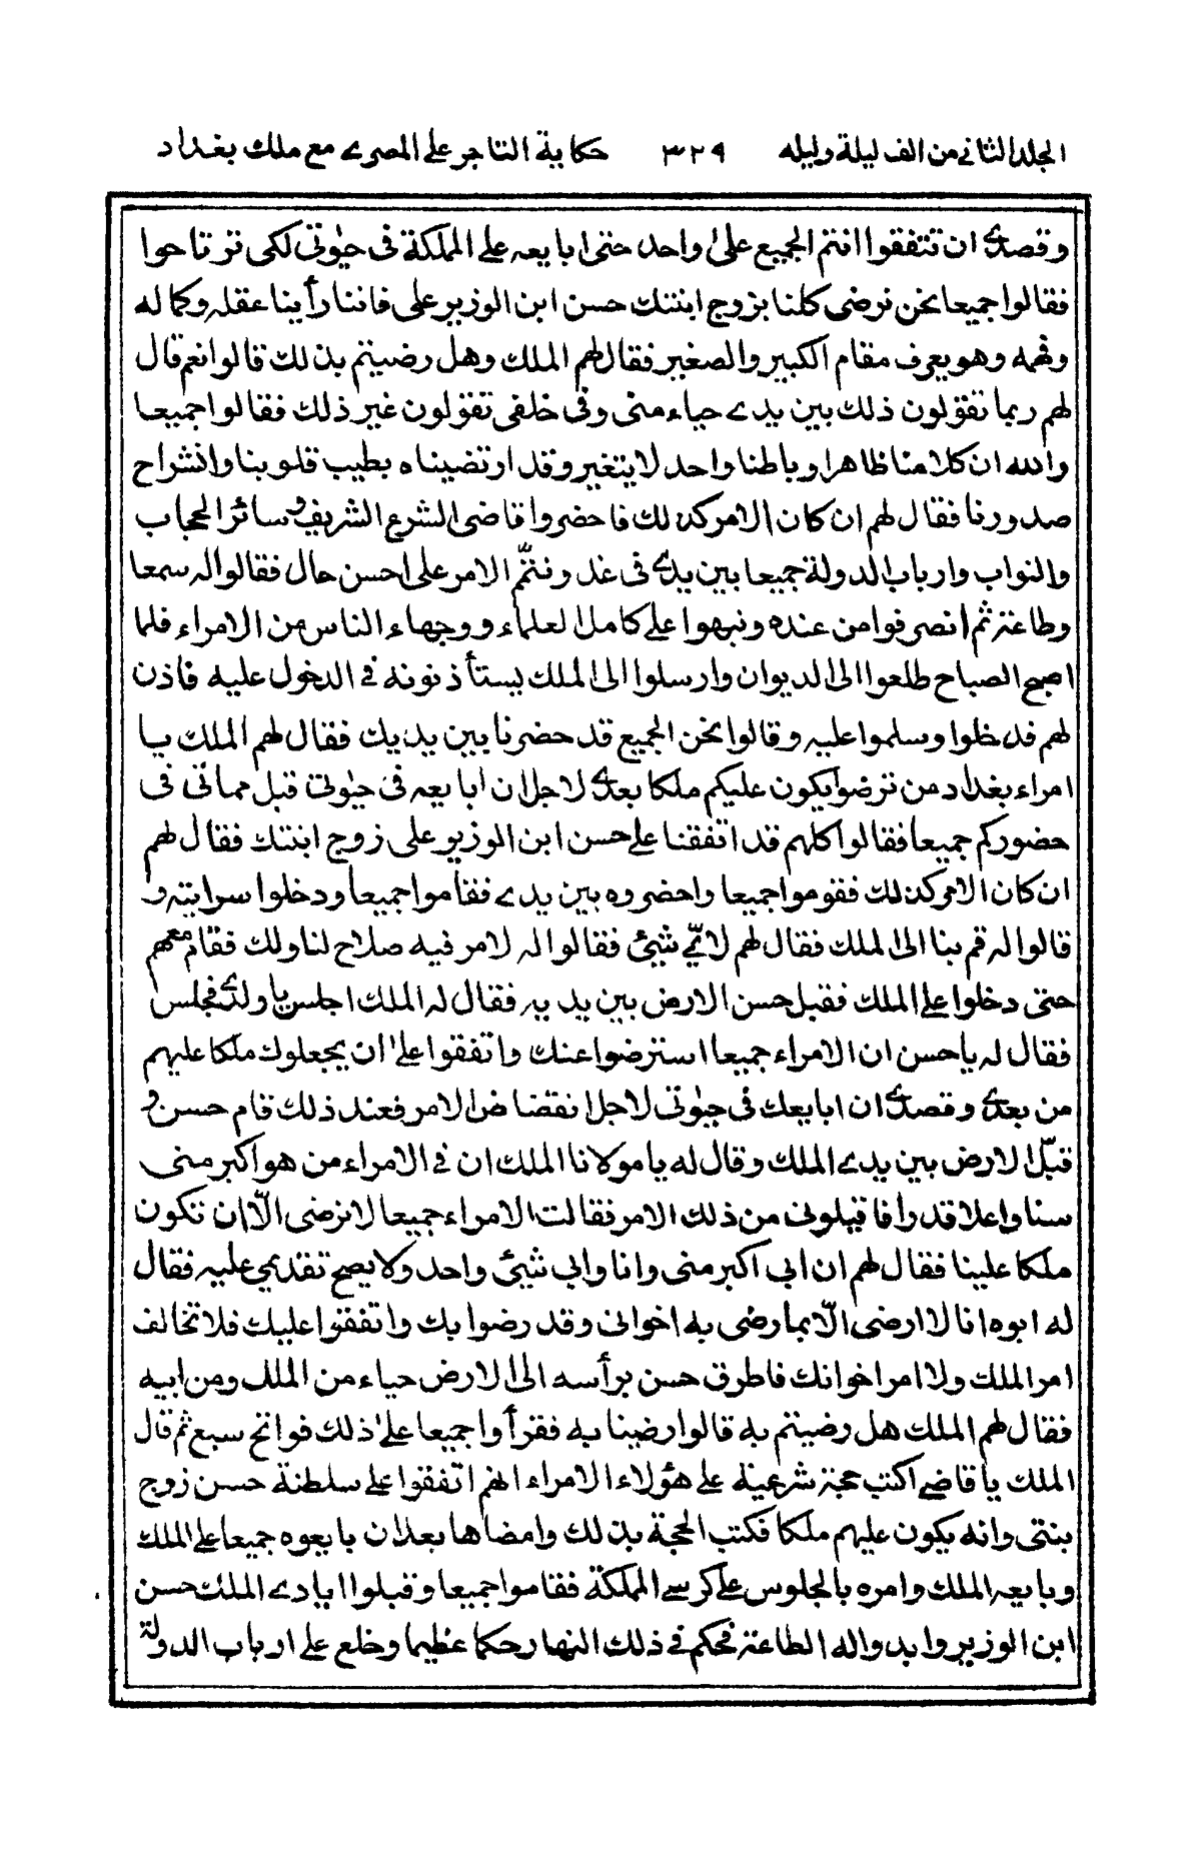 المجلد الثاني من الف ليلة وليله ٣٢٩ حكاية التاجر علي المصري مع ملك بغداد
وقصدي ان تتفقوا انتم الجميع علىٰ واحد حتى ابايعه على المملكة فى حيٰوتي لكى ترتاحوا
فقالوا جميعا نحن نرضى كلنا بزوج ابنتك حسن ابن الوزير على فاننا رأينا عقله وكماله
وفهمه وهو يعرف مقام الكبير والصغير فقال لهم الملك وهل رضيتم بذلك قالوا نعم قال
لهم ربما تقولون ذلك بين يدي حياء منى وفى خلفى تقولون غير ذلك فقالوا جميعا
والله ان كلامنا ظاهرا وباطنا واحد لا يتغير وقد ارتضيناه بطيب قلوبنا وانشراح
صدورنا فقال لهم ان كان الامر كذلك فاحضروا قاضى الشرع الشريف وسائر الحجاب
والنواب وارباب الدولة جميعا بين يدي فى غد ونتمّم الامر على احسن حال فقالوا له سمعا
وطاعة ثم انصرفوا من عنده ونبهوا على كامل العلماء ووجهاء الناس من الامراء فلما
اصبح الصباح طلعوا الى الديوان وارسلوا الى الملك يستأذنونه في الدخول عليه فاذن
لهم فدخلوا وسلموا عليه وقالوا نحن الجميع قد حضرنا بين يديك فقال لهم الملك يا
امراء بغداد من ترضوا يكون عليكم ملكا بعدي لاجل ان ابايعه فى حيٰوتي قبل مماتى فى
حضوركم جميعا فقالوا كلهم قد اتفقنا على حسن ابن الوزير على زوج ابنتك فقال لهم
ان كان الامر كذلك فقوموا جميعا واحضروه بين يدي فقاموا جميعا ودخلوا سرايته و
قالوا له قم بنا الى الملك فقال لهم لايّ شيئ فقالوا له لامر فيه صلاح لنا ولك فقام معهم
حتى دخلوا على الملك فقبل حسن الارض بين يديه فقال له الملك اجلس يا ولدي فجلس
فقال له يا حسن ان الامراء جميعا استرضوا عنك واتفقوا علىٰ ان يجعلوك ملكا عليهم
من بعدي وقصدي ان ابايعك فى حيٰوتى لاجل انقضاض الامر فعند ذلك قام حسن و
قبّل الارض بين يدي الملك وقال له يا مولانا الملك ان في الامراء من هو اكبر منى
سنا واعلا قدرا فاقيلونى من ذلك الامر فقالت الامراء جميعا لا نرضى الّا ان تكون
ملكا علينا فقال لهم ان ابي اكبر منى وانا وابي شيئ واحد ولا يصح تقديمي عليه فقال
له ابوه انا لا ارضى الّا بما رضى به اخوانى وقد رضوا بك واتفقوا عليك فلا تخالف
امر الملك ولا امر اخوانك فاطرق حسن برأسه الى الارض حياء من الملك ومن ابيه
فقال لهم الملك هل رضيتم به قالوا رضينا به فقرأوا جميعا علىٰ ذلك فواتح سبع ثم قال
الملك يا قاضي اكتب حجة شرعية على هؤلاء الامراء انهم اتفقوا على سلطنة حسن زوج
بنتى وانه يكون عليهم ملكا فكتب الحجة بذلك وامضاها بعد ان بايعوه جميعا على الملك
وبايعه الملك وامره بالجلوس على كرسي المملكة فقاموا جميعا وقبلوا ايادي الملك حسن
ابن الوزير وابدوا له الطاعة فحكم في ذلك النهار حكما عظيما وخلع على ارباب الدولة